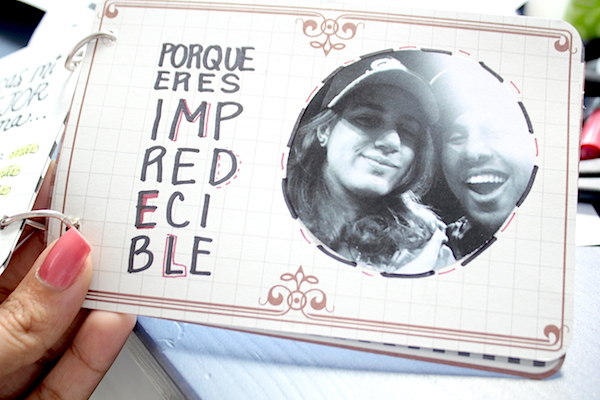 PORQUE
ERES
IMP
RED
ECI
BLE